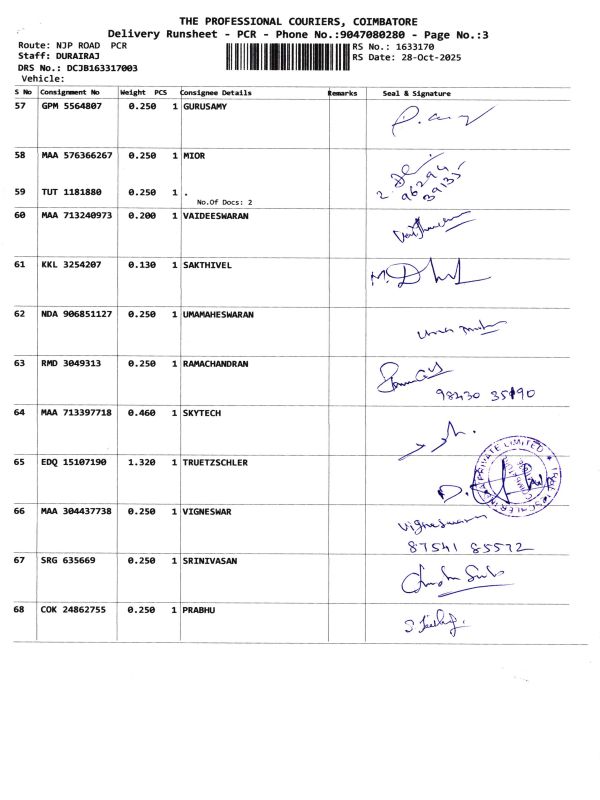 THE PROFESSIONAL COURIERS, COIMBATORE
Delivery Runsheet - PCR - Phone No.:9047080280 - Page No.:3
Route: NJP ROAD PCR
RS No.: 1633170
Staff: DURAIRAJ
RS Date: 28-Oct-2025
DRS No.: DCJB163317003
Vehicle:
S No Consignment No Weight PCS Consignee Details Remarks Seal & Signature
57 GPM 5564807 0.250 1 GURUSAMY
58 MAA 576366267 0.250 1 MIOR
59 TUT 1181880 0.250 1 .
No.Of Docs: 2
60 MAA 713240973 0.200 1 VAIDEESWARAN
61 KKL 3254207 0.130 1 SAKTHIVEL
62 NDA 906851127 0.250 1 UMAMAHESWARAN
63 RMD 3049313 0.250 1 RAMACHANDRAN
98430 35190
64 MAA 713397718 0.460 1 SKYTECH
65 EDQ 15107190 1.320 1 TRUETZSCHLER
PRIVATE LIMITED
66 MAA 304437738 0.250 1 VIGNESWAR
Vigneswaran
87541 85572
67 SRG 635669 0.250 1 SRINIVASAN
68 COK 24862755 0.250 1 PRABHU